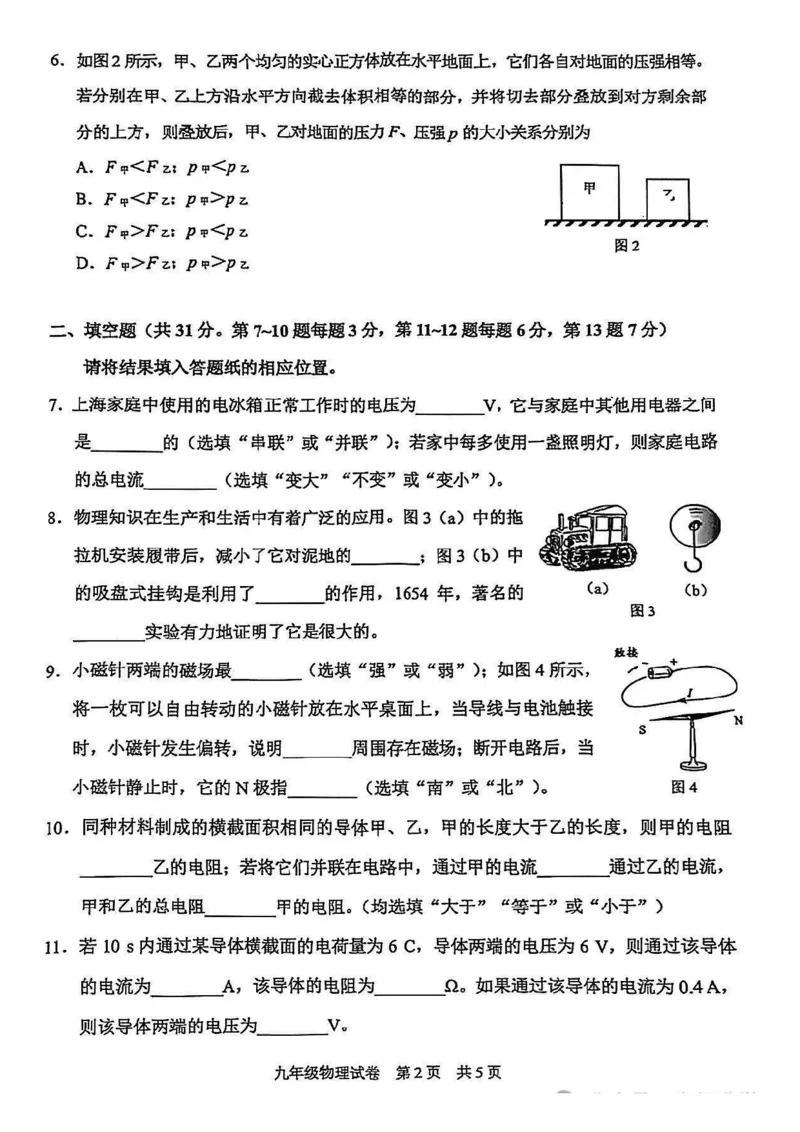 6．如图2所示，甲、乙两个均匀的实心正方体放在水平地面上，它们各自对地面的压强相等。
若分别在甲、乙上方沿水平方向截去体积相等的部分，并将切去部分叠放到对方剩余部
分的上方，则叠放后，甲、乙对地面的压力F、压强p的大小关系分别为
A．F甲＜F乙；p甲＜p乙
B．F甲＜F乙；p甲＞p乙
C．F甲＞F乙；p甲＜p乙
D．F甲＞F乙；p甲＞p乙
甲
乙
图2
二、填空题（共31分。第7~10题每题3分，第11~12题每题6分，第13题7分）
请将结果填入答题纸的相应位置。
7．上海家庭中使用的电冰箱正常工作时的电压为______V，它与家庭中其他用电器之间
是______的（选填“串联”或“并联”）；若家中每多使用一盏照明灯，则家庭电路
的总电流______（选填“变大”“不变”或“变小”）。
8．物理知识在生产和生活中有着广泛的应用。图3（a）中的拖
拉机安装履带后，减小了它对泥地的______；图3（b）中
的吸盘式挂钩是利用了______的作用，1654 年，著名的
______实验有力地证明了它是很大的。
(a)
(b)
图3
9．小磁针两端的磁场最______（选填“强”或“弱”）；如图4所示，
将一枚可以自由转动的小磁针放在水平桌面上，当导线与电池触接
时，小磁针发生偏转，说明______周围存在磁场；断开电路后，当
小磁针静止时，它的N极指______（选填“南”或“北”）。
触接
+
I
S
N
图4
10．同种材料制成的横截面积相同的导体甲、乙，甲的长度大于乙的长度，则甲的电阻
______乙的电阻；若将它们并联在电路中，通过甲的电流______通过乙的电流，
甲和乙的总电阻______甲的电阻。（均选填“大于”“等于”或“小于”）
11．若 10 s内通过某导体横截面的电荷量为 6 C，导体两端的电压为 6 V，则通过该导体
的电流为______A，该导体的电阻为______Ω。如果通过该导体的电流为 0.4 A，
则该导体两端的电压为______V。
九年级物理试卷 第2页 共5页